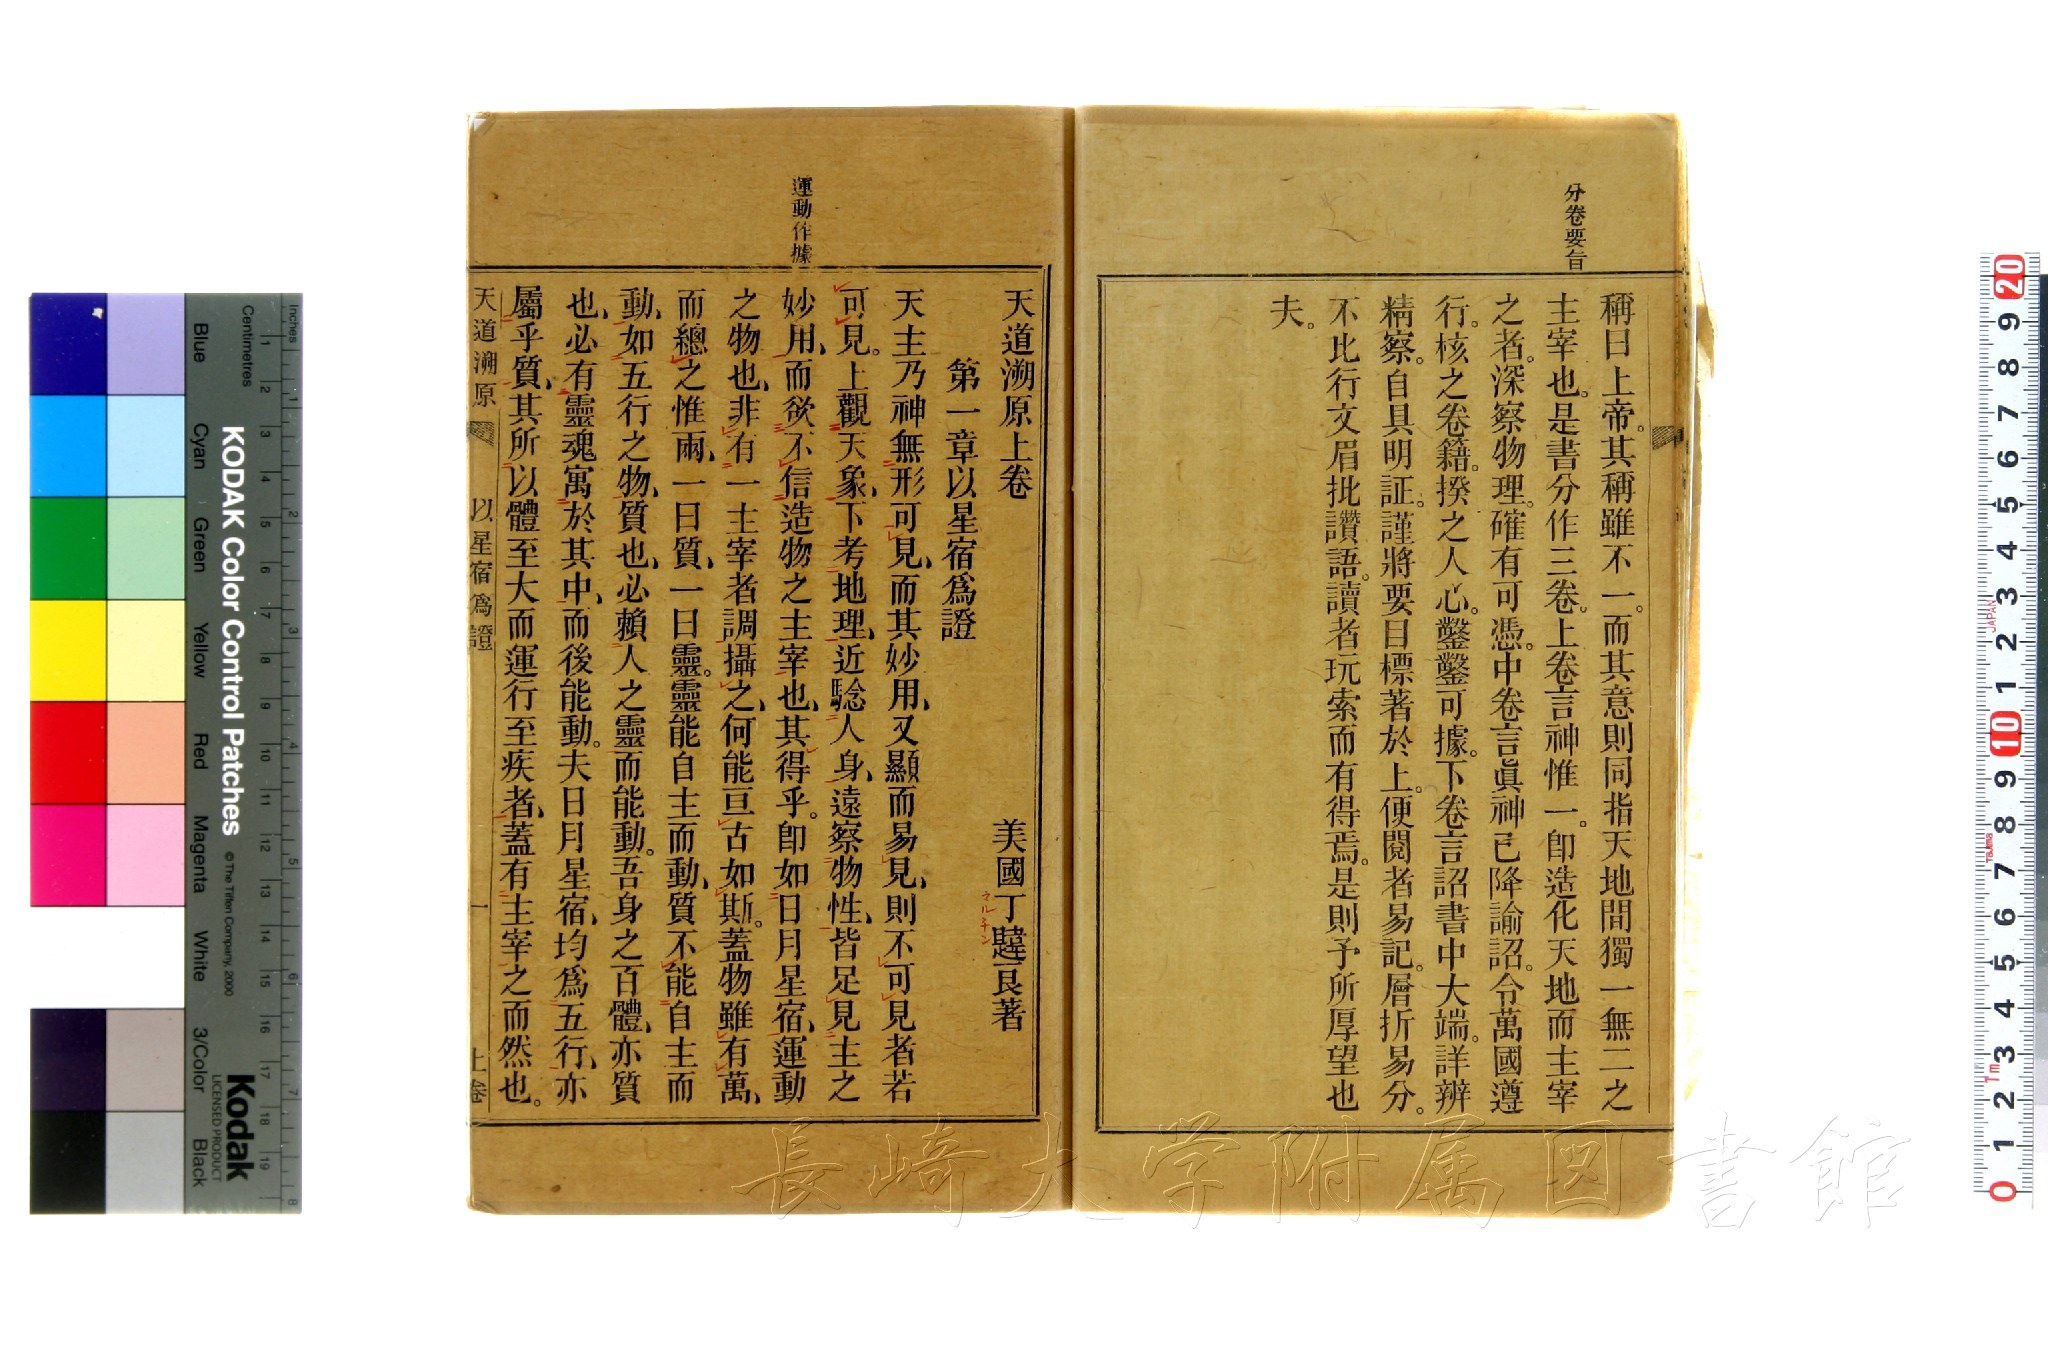 分卷要旨
稱曰上帝。其稱雖不一。而其意則同指天地間獨一無二之
主宰也。是書分作三卷。上卷言神惟一。卽造化天地而主宰
之者。深察物理。確有可憑。中卷言眞神已降諭詔。令萬國遵
行。核之卷籍。揆之人心。鑿鑿可據。下卷言詔書中大端。詳辨
精察。自具明証。謹將要目標著於上。便閱者易記。層折易分。
不比行文眉批讚語。讀者玩索而有得焉。是則予所厚望也
夫。
運動作據
天道溯原上卷
美國丁韙良著
マルチン
第一章以星宿爲證
天主乃神無形可見、而其妙用、又顯而易見、則不可見者若
可見。上觀天象、下考地理、近驗人身、遠察物性、皆足見主之
妙用、而欲不信造物之主宰也、其得乎。卽如日月星宿、運動
之物也、非有一主宰者調攝之、何能亘古如斯。蓋物雖有萬、
而總之惟兩、一曰質、一曰靈。靈能自主而動、質不能自主而
動、如五行之物、質也、必賴人之靈而能動。吾身之百體、亦質
也、必有靈魂寓於其中、而後能動。夫日月星宿、均爲五行、亦
屬乎質、其所以體至大而運行至疾者、蓋有主宰之而然也。
天道溯原 以星宿爲證 一 上卷
KODAK Color Control Patches
© The Tiffen Company, 2000
Kodak
LICENSED PRODUCT
Inches
Centimetres
Blue
Cyan
Green
Yellow
Red
Magenta
White
3/Color
Black
1 2 3 4 5 6 7 8
1 2 3 4 5 6 7 8 9 10 11 12 13 14 15 16 17 18 19
20 9 8 7 6 5 4 3 2 1 10 9 8 7 6 5 4 3 2 1 0
JAPAN
Tajima
長崎大学附属図書館